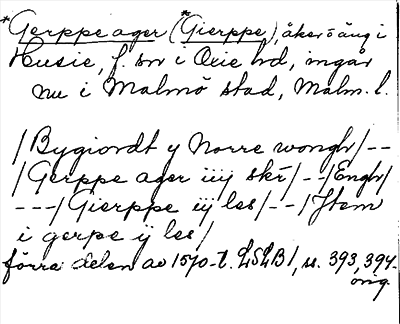 *Gerppe ager (*Gierppe), åker o äng i
Husie, f. sn i Oxie hd, ingår
nu i Malmö stad, Malm. l.
/Bygiordt y Norre wongh/--
/Gerppe ager iiij skr/--/Engh/
---/Gierppe iij les/--/Jtem
i gerpe ij les/
förra delen av 1570-t. LSLB1, s. 393, 394.
orig.